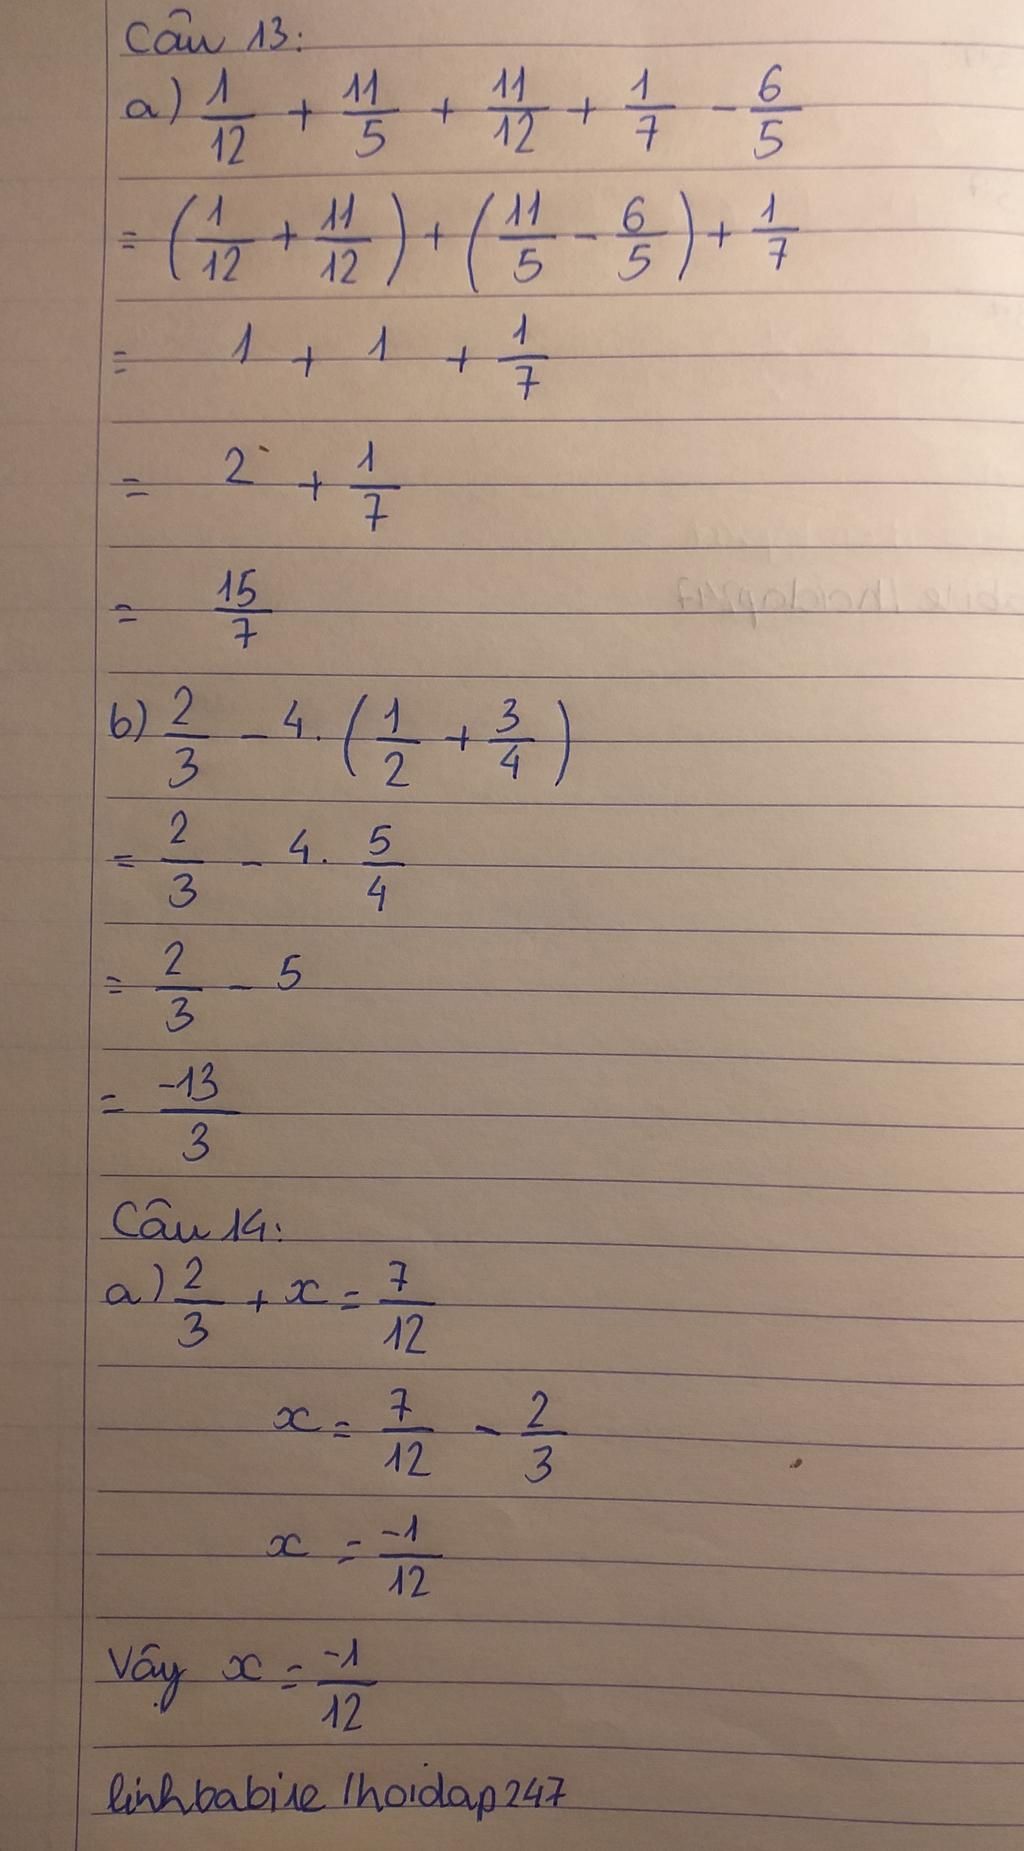 Câu 13:
a) 1/12 + 11/5 + 11/12 + 1/7 - 6/5
= (1/12 + 11/12) + (11/5 - 6/5) + 1/7
= 1 + 1 + 1/7
= 2 + 1/7
= 15/7
b) 2/3 - 4. (1/2 + 3/4)
= 2/3 - 4. 5/4
= 2/3 - 5
= -13/3
Câu 14:
a) 2/3 + x = 7/12
x = 7/12 - 2/3
x = -1/12
Vậy x = -1/12
linhbabie /hoidap247